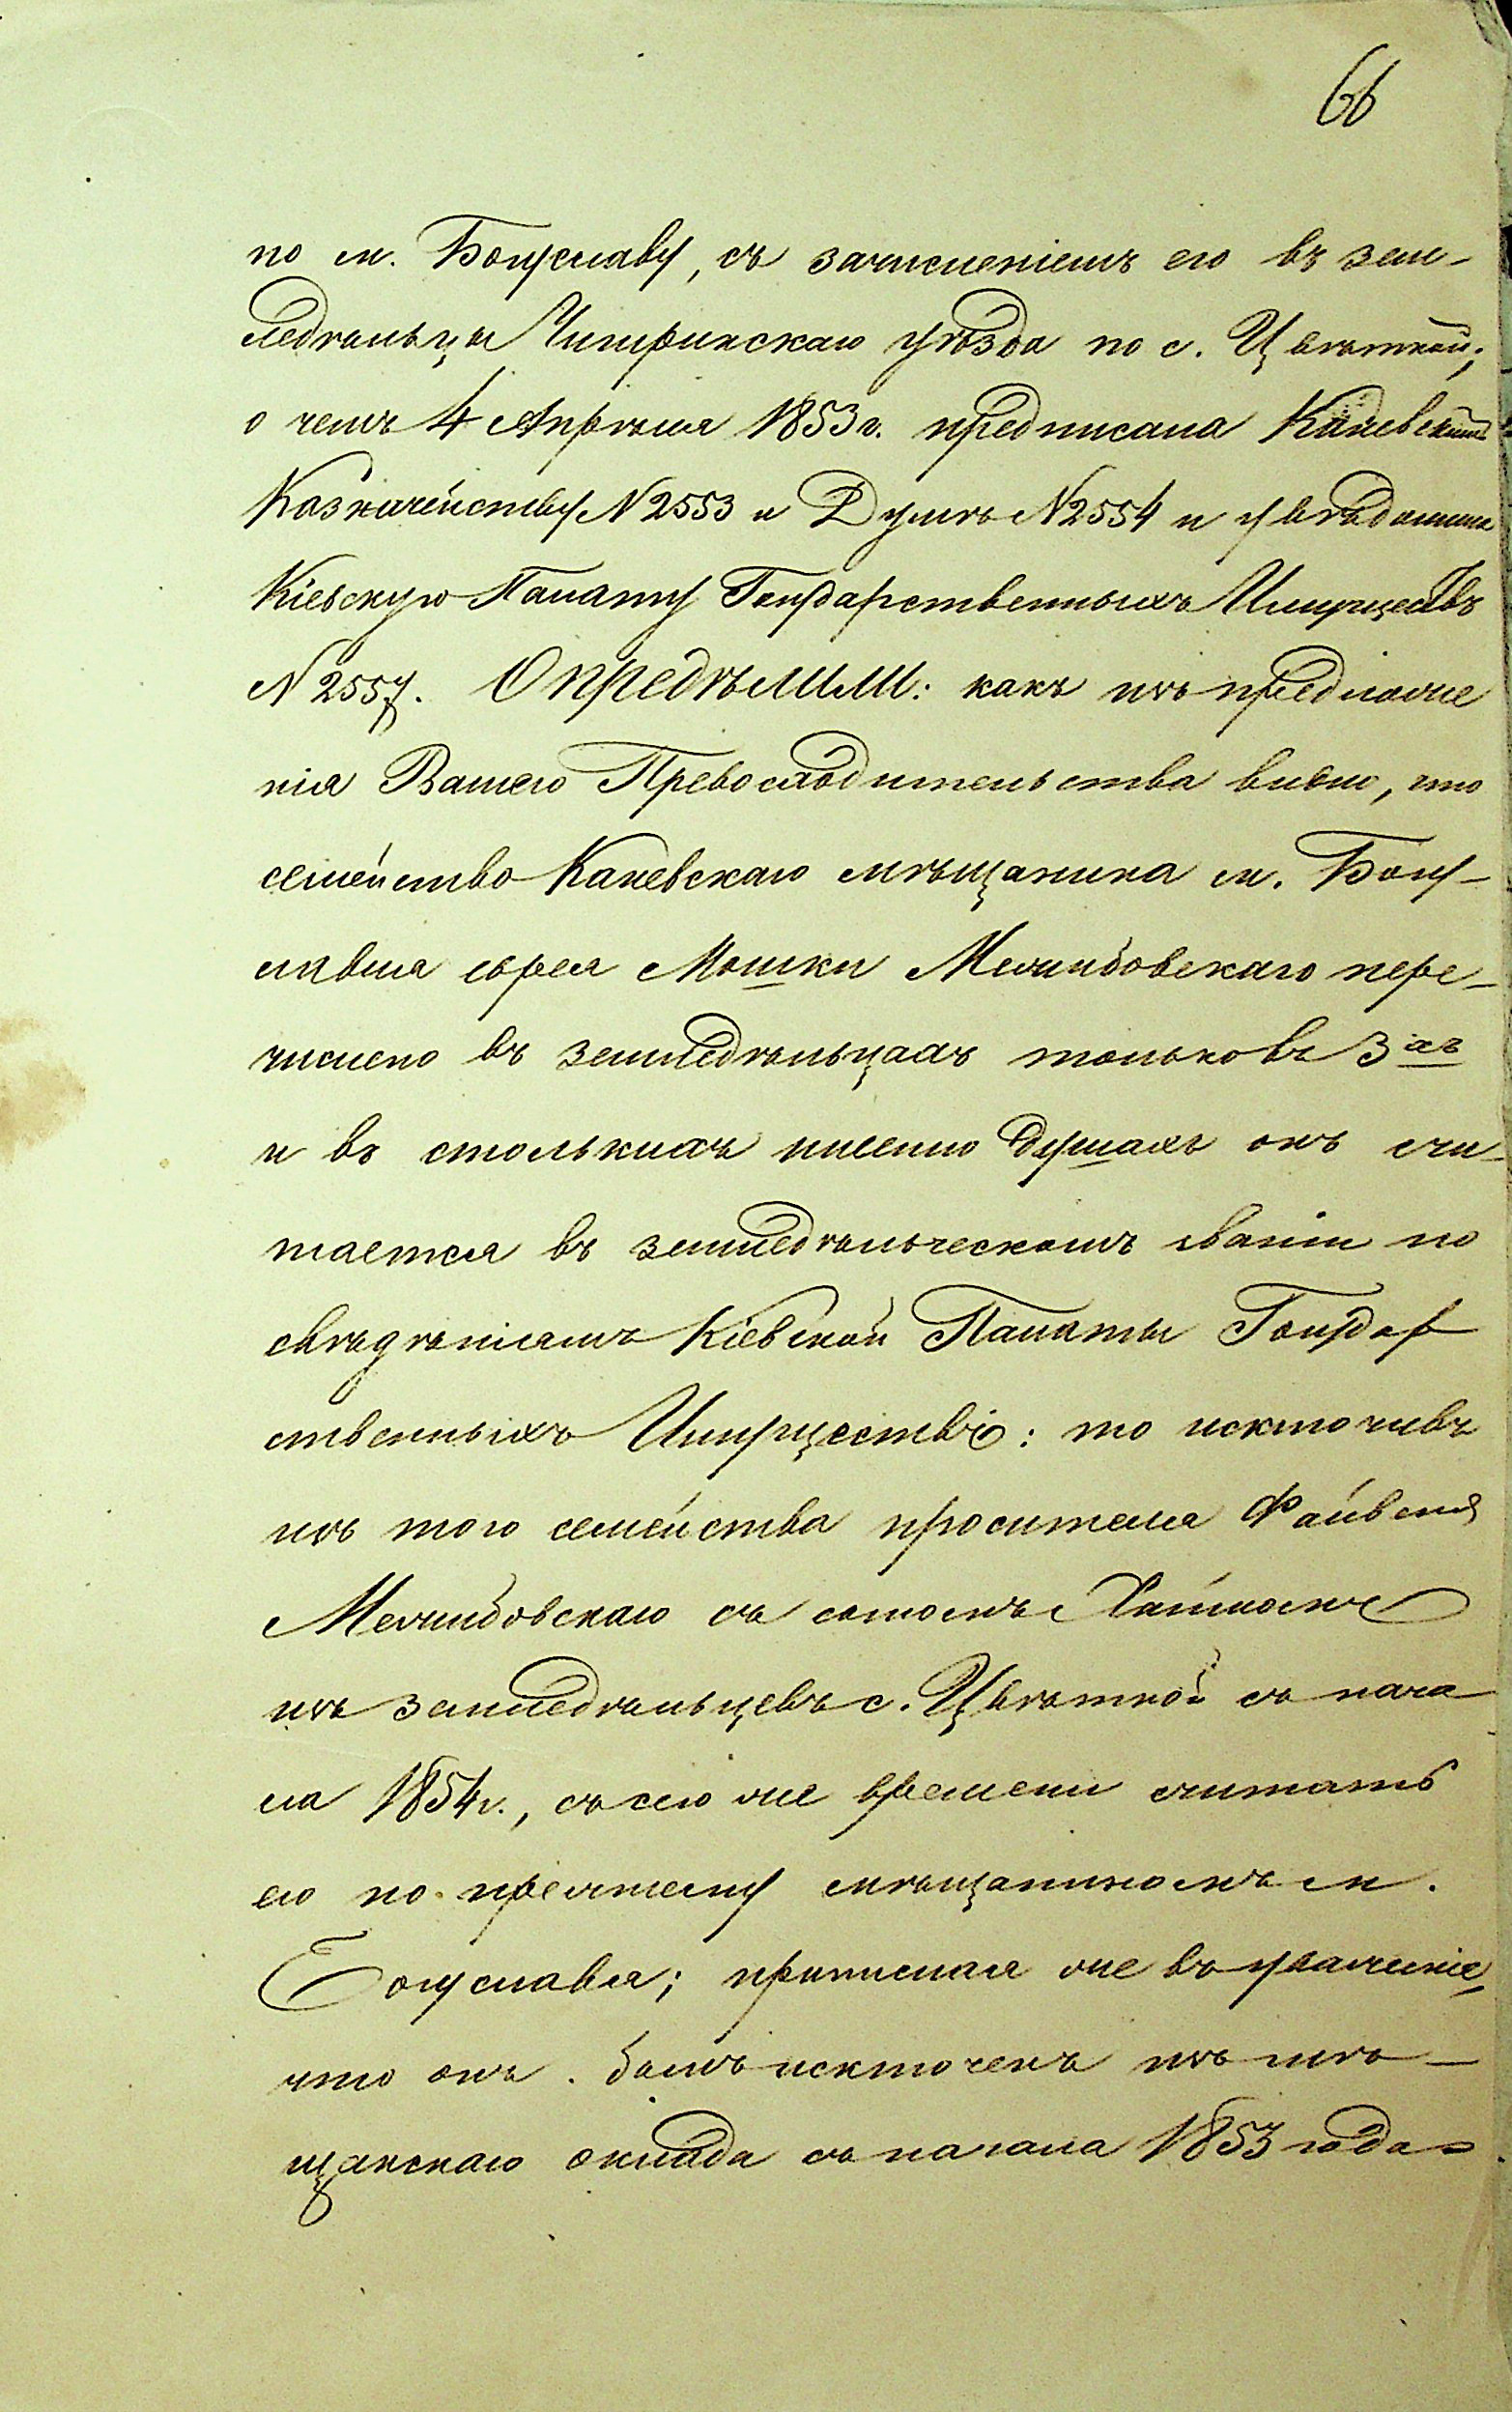 66
по м. Богуславу, съ зачисленіемъ его въ зем-
ледѣльцы Чигиринскаго уѣзда по с. Цвѣтной;
о чемъ 4 Апрѣля 1853 г. предписала Каневскимъ
Казначейству N 2553 и Думѣ N 2554 и увѣдомила
Кіевскую Палату Государственныхъ Имуществъ
N 2557. Опредѣлили: какъ изъ предложе
нія Вашего Превосходительства видно, что
семейство Каневскаго мѣщанина м. Богу-
славля еврея Мошки Межибовскаго пере-
числено въ земледѣльцахъ только въ 3хъ
и въ столькихъ именно душахъ онъ счи-
тается въ земледѣльческомъ званіи по
свѣдѣніямъ Кіевской Палаты Государ
ственныхъ Имуществъ: то исключивъ
изъ того семейства просителя Файвеля
Межибовскаго съ сыномъ Хаимомъ
изъ земледѣльцевъ с. Цвѣтной съ нача
ла 1854 г., съ сего же времени считать
его по прежнему мѣщаниномъ м.
Богуславля; принимая же въ уваженіе,
что онъ былъ исключенъ изъ мѣ-
щанскаго оклада съ начала 1853 года